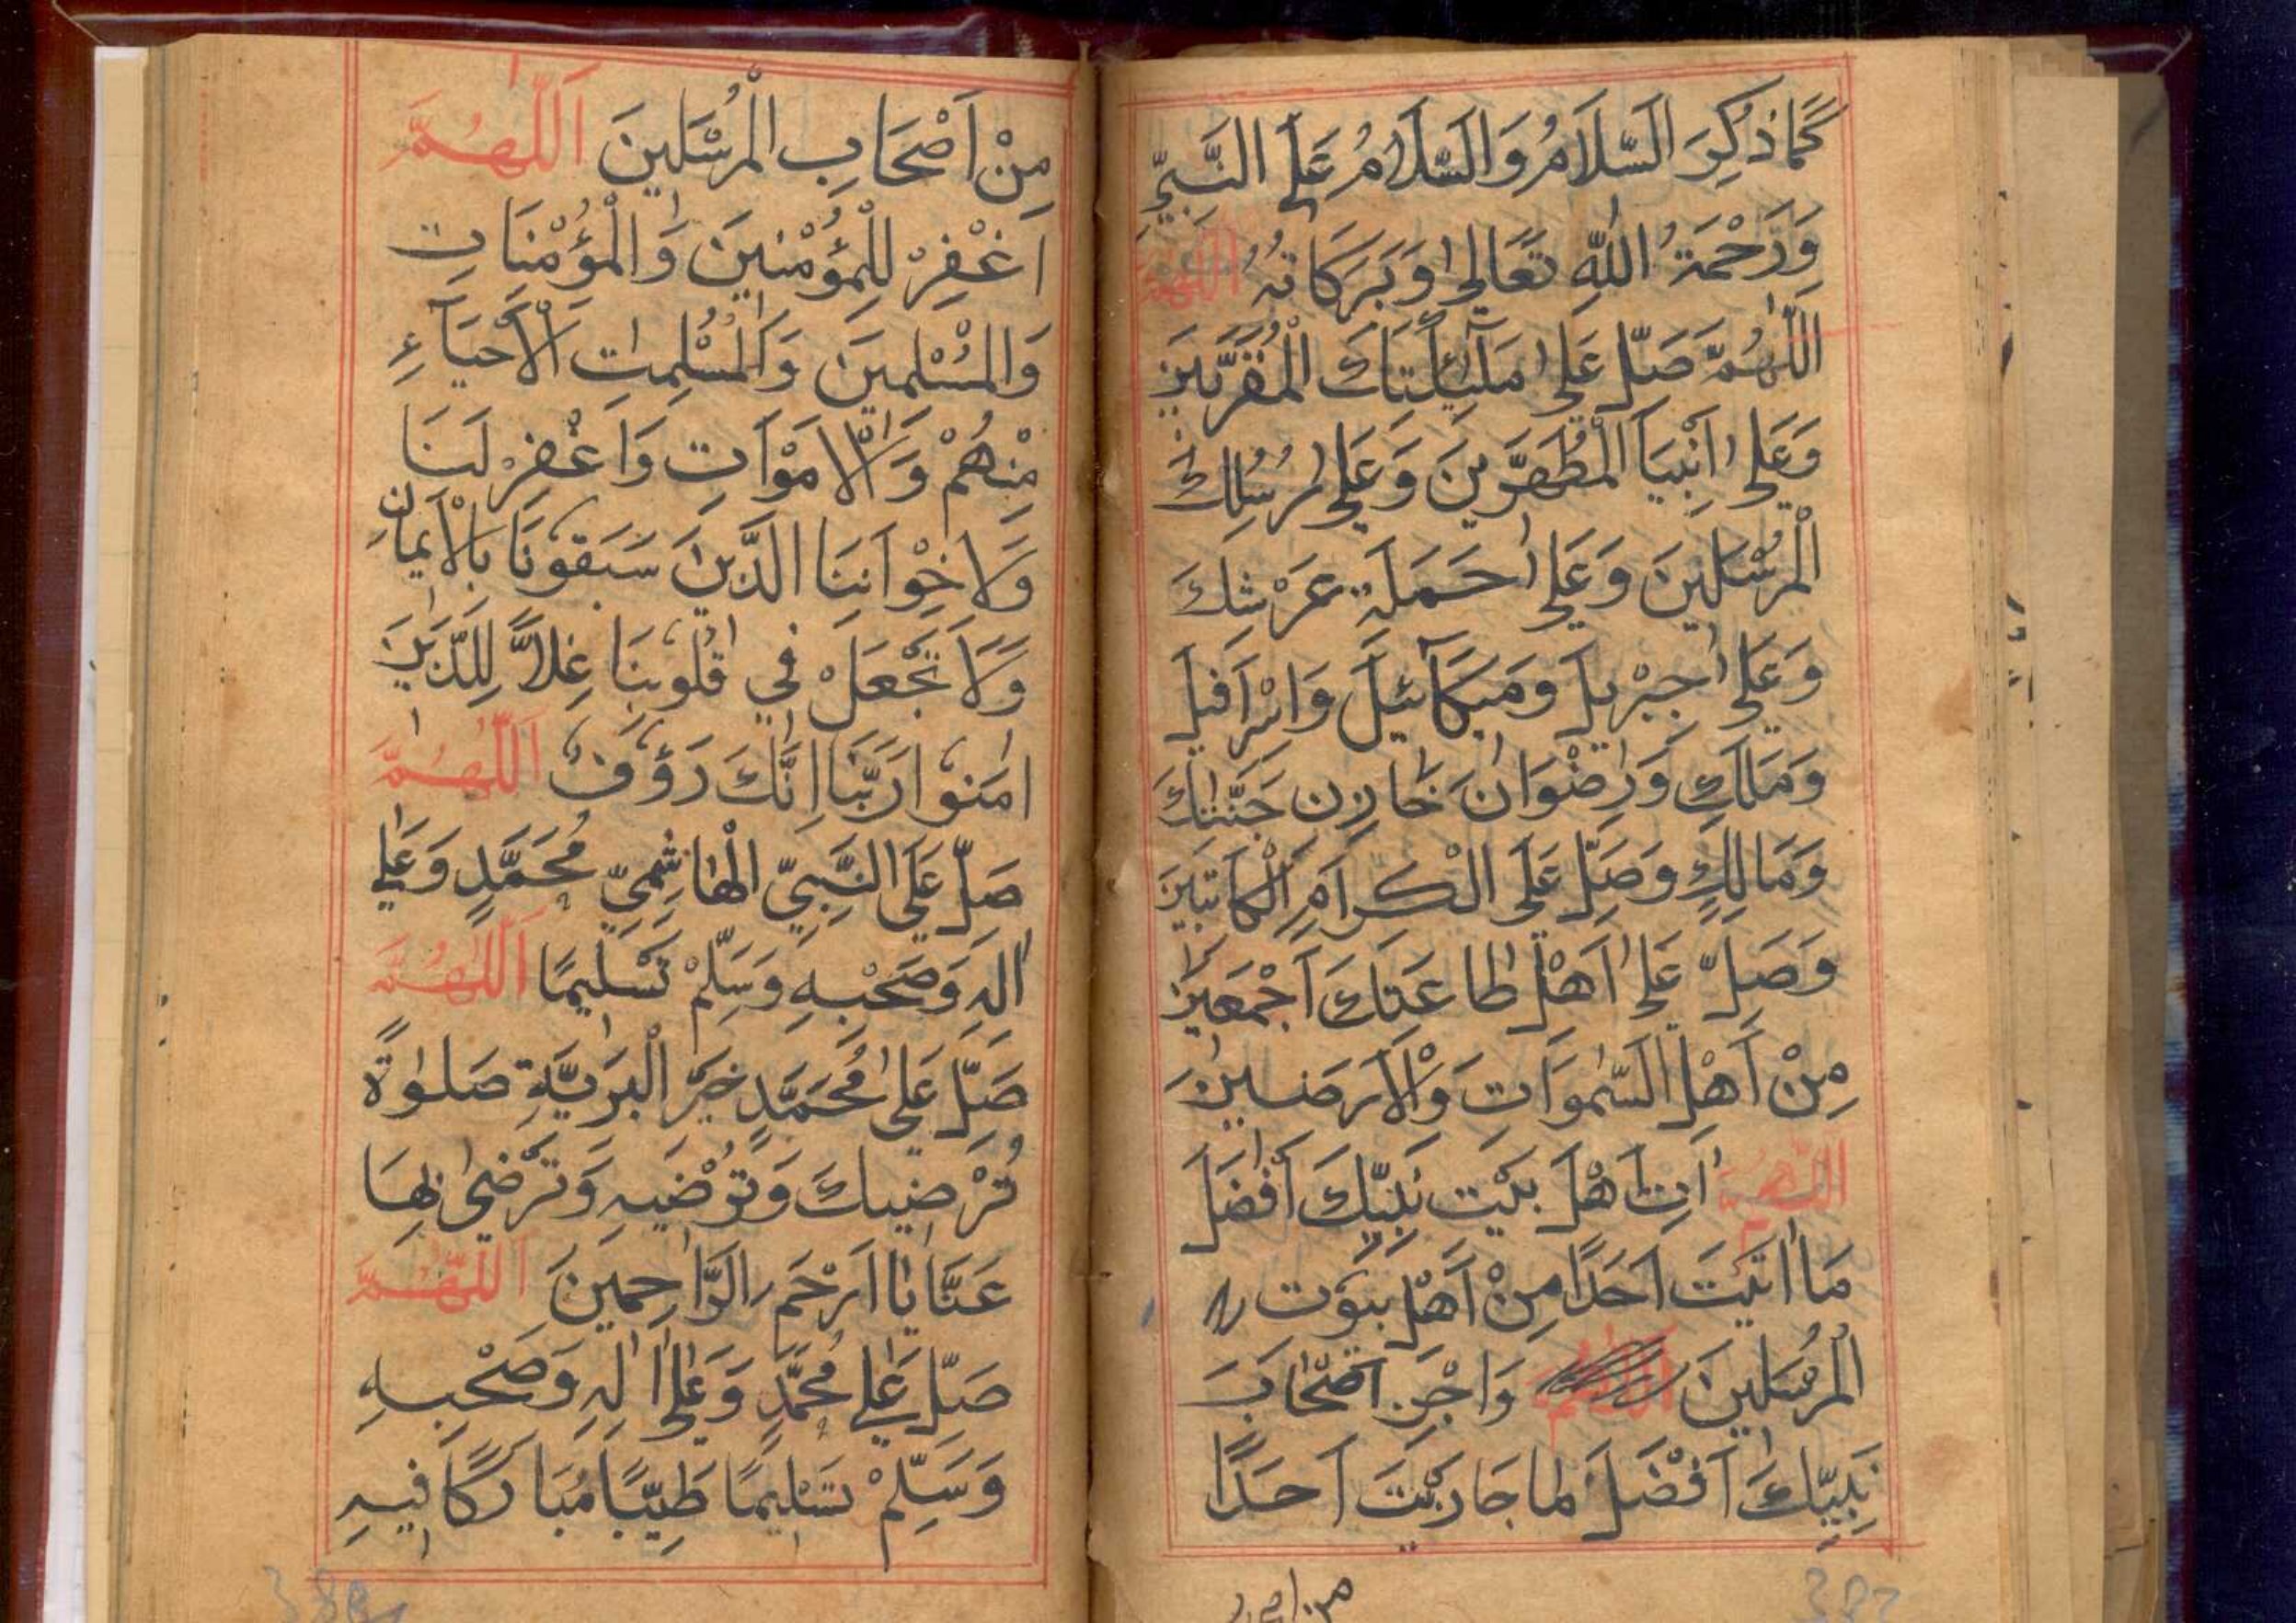 كَمَا ذُكِرَ السَّلَامُ وَالسَّلَامُ عَلَى النَّبِيِّ
وَرَحْمَةُ اللّٰهِ تَعَالٰى وَبَرَكَاتُهُ اللّهمّ
اَللّٰهُمَّ صَلِّ عَلٰى مَلٰٓئِكَتِكَ الْمُقَرَّبِينَ
وَعَلٰى اَنْبِيَآ الْمُطَهَّرِينَ وَعَلٰى رُسُلِكَ
الْمُرْسَلِينَ وَعَلٰى حَمَلَةِ عَرْشِكَ
وَعَلٰى جِبْرِيلَ وَمِيكَآئِيلَ وَاِسْرَافِيلَ
وَمَلَكِ وَرِضْوَانَ خَازِنِ جَنَّتِكَ
وَمَالِكٍ وَصَلِّ عَلَى الْكِرَامِ الْكَاتِبِينَ
وَصَلِّ عَلٰى اَهْلِ طَاعَتِكَ اَجْمَعِينَ
مِنْ اَهْلِ السَّمٰوَاتِ وَالْاَرَضِينَ
اللّٰهُمَّ اٰتِ اَهْلَ بَيْتِ نَبِيِّكَ اَفْضَلَ
مَا اٰتَيْتَ اَحَدًا مِنْ اَهْلِ بُيُوْتِ
الْمُرْسَلِينَ وَاجْزِ اَصْحَابَ
نَبِيِّكَ اَفْضَلَ مَا جَازَيْتَ اَحَدًا
مِنْ اَصْحَابِ الْمُرْسَلِينَ اَللّٰهُمَّ
اغْفِرْ لِلْمُؤْمِنِينَ وَالْمُؤْمِنَاتِ
وَالْمُسْلِمِينَ وَالْمُسْلِمٰتِ الْاَحْيَآءِ
مِنْهُمْ وَالْاَمْوَاتِ وَاغْفِرْ لَنَا
وَلِاِخْوَانِنَا الَّذِينَ سَبَقُوْنَا بِالْاِيْمَانِ
وَلَا تَجْعَلْ فِي قُلُوْبِنَا غِلًّا لِلَّذِيْنَ
اٰمَنُوْا رَبَّنَا اِنَّكَ رَؤُوْفٌ اَللّٰهُمَّ
صَلِّ عَلَى النَّبِيِّ الْهَاشِمِيِّ مُحَمَّدٍ وَعَلٰى
اٰلِهِ وَصَحْبِهِ وَسَلِّمْ تَسْلِيْمًا اَللّٰهُمَّ
صَلِّ عَلٰى مُحَمَّدٍ خَيْرِ الْبَرِيَّةِ صَلٰوةً
تُرْضِيكَ وَتُرْضِيهِ وَتَرْضٰى بِهَا
عَنَّا يَا اَرْحَمَ الرَّاحِمِينَ اَللّٰهُمَّ
صَلِّ عَلٰى مُحَمَّدٍ وَعَلٰى اٰلِهِ وَصَحْبِهِ
وَسَلِّمْ تَسْلِيمًا طَيِّبًا مُبَارَكًا فِيهِ